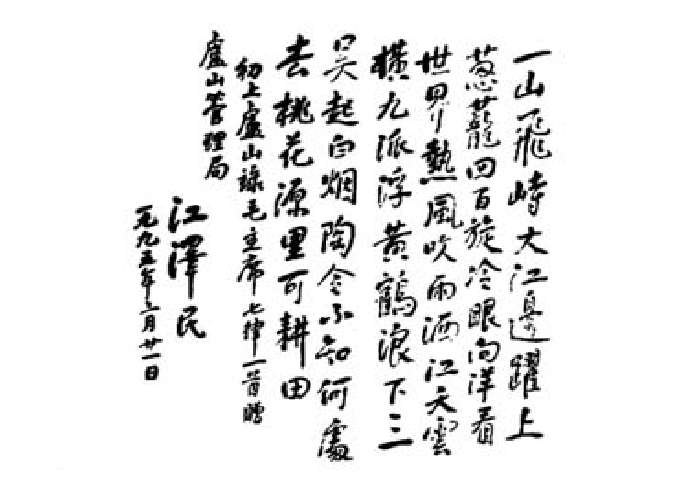 一山飛峙大江邊躍上
葱蘢四百旋冷眼向洋看
世界熱風吹雨洒江天雲
横九派浮黄鶴浪下三
吴起白烟陶令不知何處
去桃花源里可耕田
初上廬山録毛主席七律一首贈
廬山管理局
江澤民
一九九五年三月廿一日